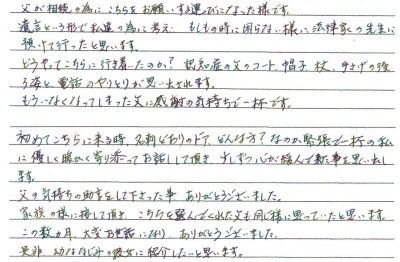 父が相続の為に こちらをお願いする運びになった様です。
遺言という形で私達の為に考え もしもの時に困らない様に法律家の先生に
預けて行ったと思います。
どうやってこちらに行き着いたのか？ 認知症の父のコート、帽子、杖、手さげの後
ろ姿と、電話のやりとりが思い出されます。
もういなくなってしまった父に感謝の気持ちで一杯です。
初めてこちらに来る時、名刺どおりのドア、どんな方？なのか緊張で一杯の私
に優しく暖かく寄り添ってお話しして頂き 少しずつ心が緩んで来た事を思い出し
ます。
父の気持ちの助言をして下さった事 ありがとうございました。
家族の様に接して頂き、こちらを選んでくれた父も同じ様に思っていたと思います。
この数ヵ月、大変お世話になり、ありがとうございました。
是非 幼ななじみの彼女に紹介したいと思います。